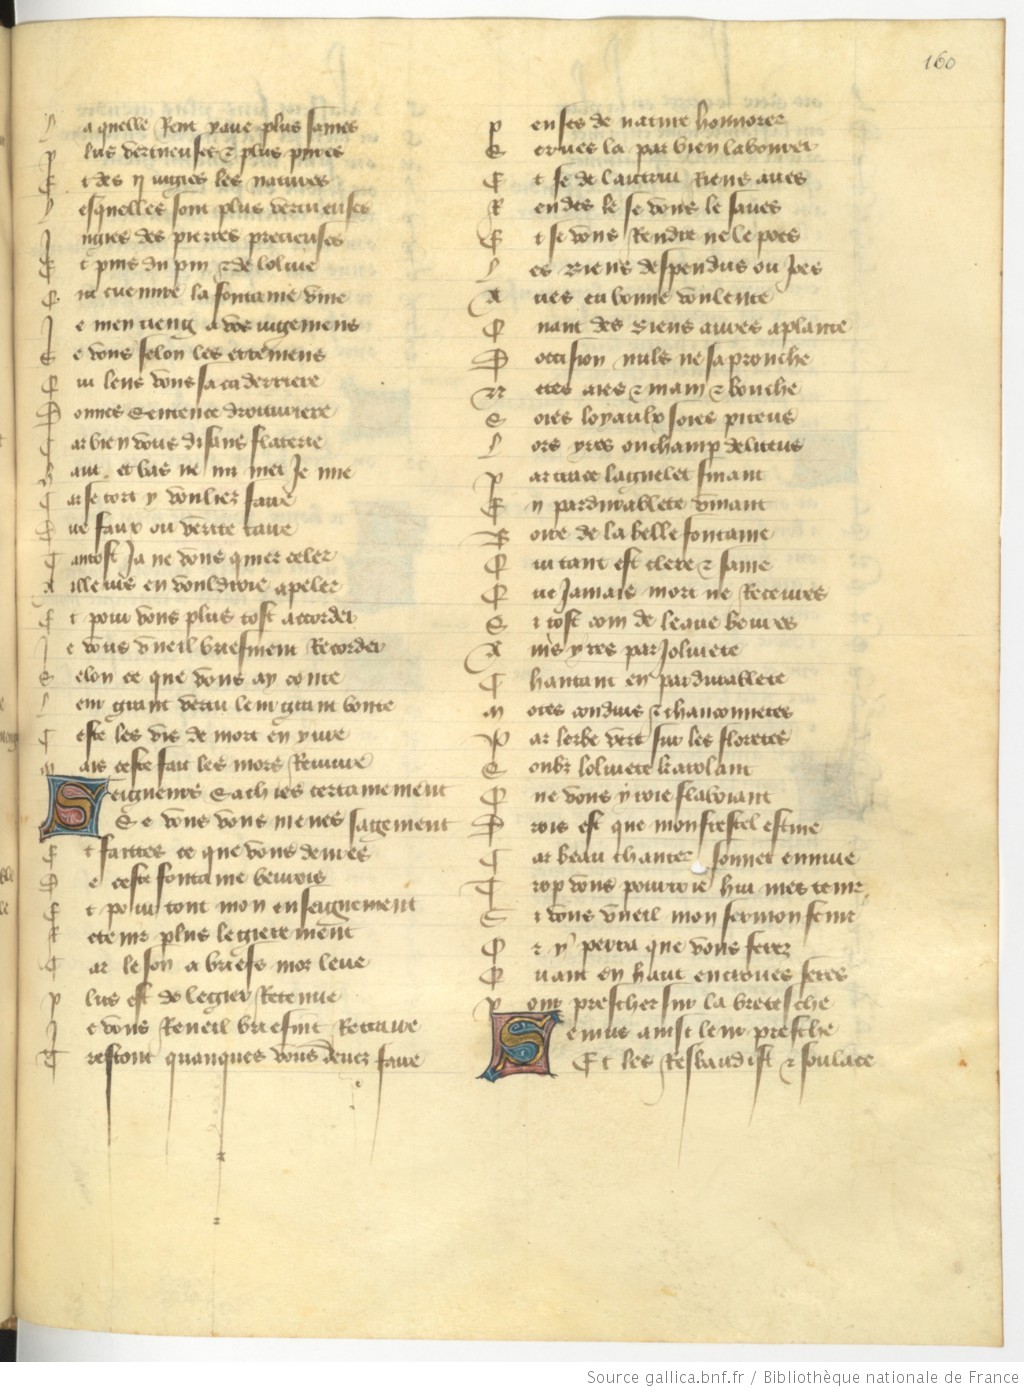 160
L a quelle Rent yaue plus saines
P lus vertueuses & plus pures
E t des ii iugies les natures
L esquelles sont plus vertueuses
I ugies des pierres precieuses
E t puis du pin & de loliue
Q ui cueuure la fontaine viue
I e men tieng a vos iugemens
S e vous selon les erremens
Q ui leus vous sa ca derriere
D onnes Sentence droituriere
C ar bien vous di sans flaterie
H aut et bas ne mi met Je mie
C ar se tort y voulies faire
D ire faux ou verite taire
T antost Ja ne vous quier celer
A illeurs en vouldroie apeler
E t pour vous plus tost accorder
I e vous vueil briefment Recorder
S elon ce que vous ay conte
L eur grant vertu leur grant bonte
C este les vis de mort enyure
M ais ceste fait les mors Reuiure
Seigneurs Sachies certainement
Se vous vous menes sagement
E t faittes ce que vous deures
D e ceste fontaine beuures
E t pour tout mon enseignement
R etenir plus legierement
C ar leson a briefs mos leue
P lus est de legier Retenue
I e vous Reueil briefmt Retraire
T restout quanques vous deues faire
P enses de nature honnorer
S erues la par bien labourer
E t se de lautrui Riens aues
R endes le se vous le saues
E t se vous Rendre ne le poes
L es biens despendus ou Joes
A ies en bonne voulente
Q uant des biens aures a plante
D occision nuls ne saprouche
N ettes aies & main & bouche
S oies loyaulx soies piteus
L ors yres ou champ deliteus
P ar trace laignelet suiuant
E n pardurablete viuant
B oire de la belle fontaine
Q ui tant est clere & saine
Q ue Jamais mort ne Receures
S i tost com de leaue beures
A ins yres par Joliuete
C hantant en pardurablete
M otes conduis & chanconnetes
P ar lerbe vert sur les floretes
S oubz loliuete karolant
Q ue vous yroie flaioiant
D rois est que mon frestel estuie
C ar beau chanter souuet ennuie
T rop vous pourroie hui mes tenir
C i vous vueil mon sermon fenir
O r y perra que vous feres
Q uant en haut encroues seres
P our preschier sur la bretesche
Genius ainsi leur presche
Et les Resbaudist & soulace
Source gallica.bnf.fr / Bibliothèque nationale de France